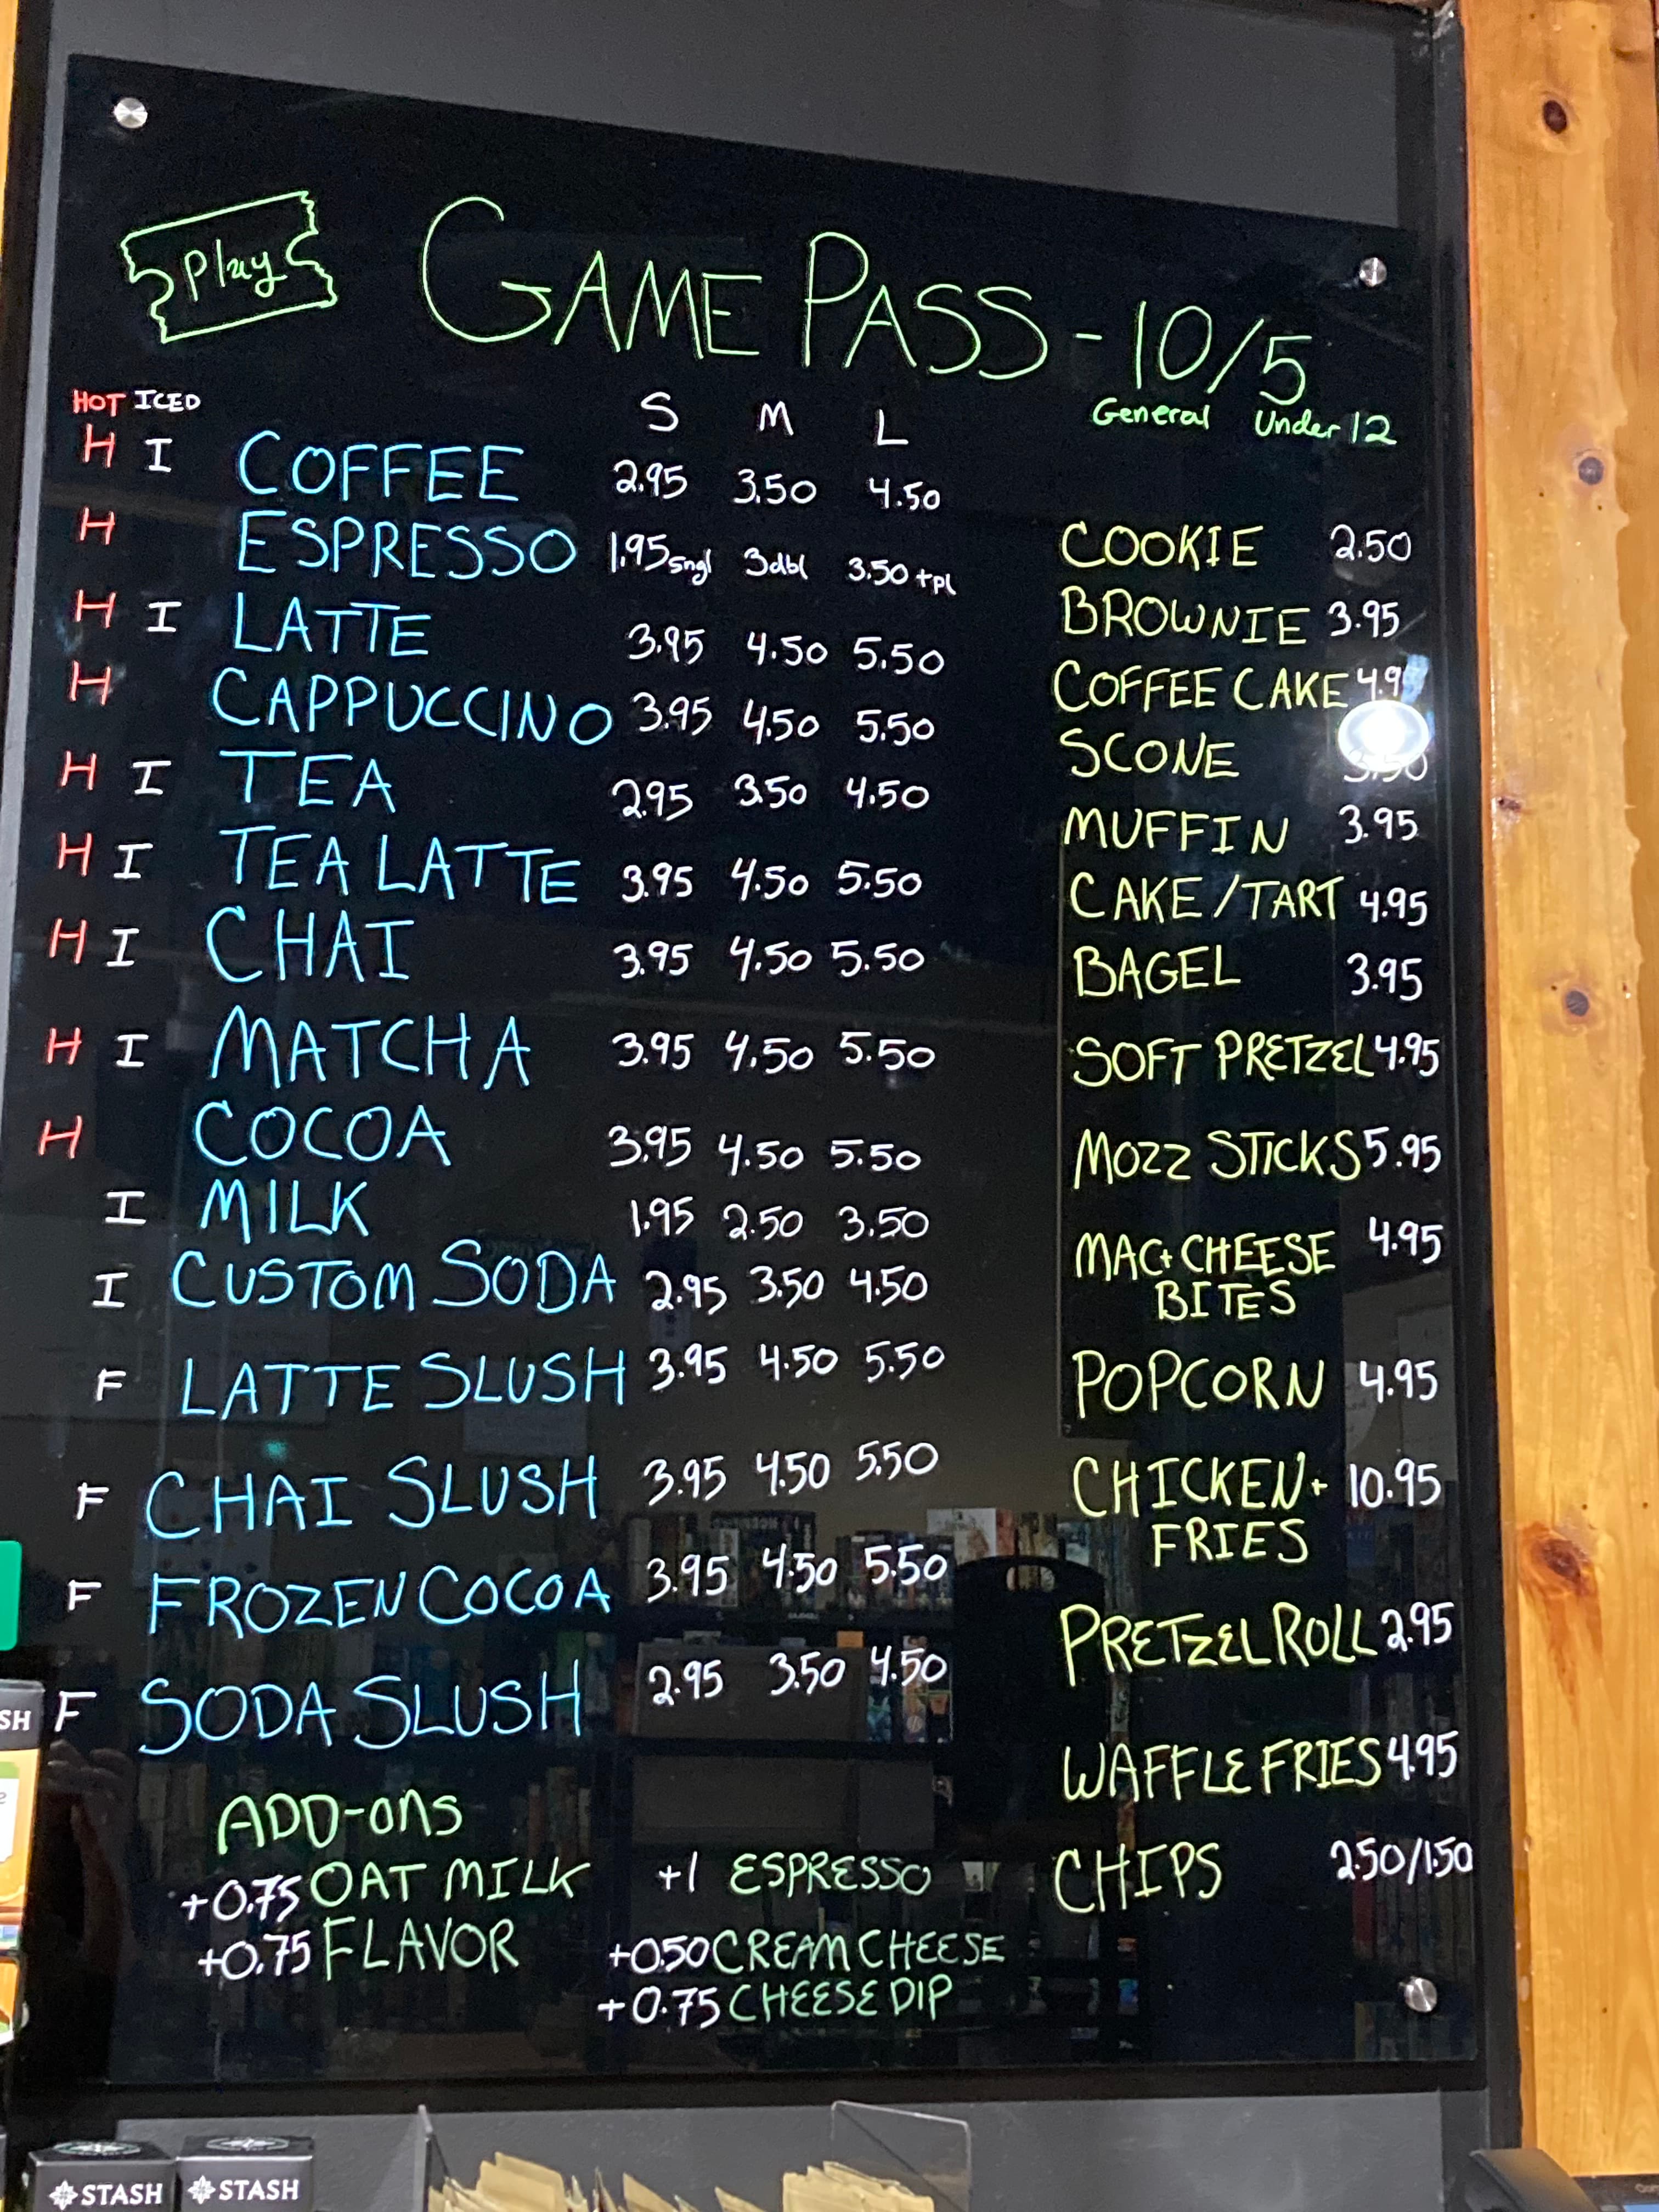 Play
GAME PASS - 10/5
General Under 12
HOT ICED
S M L
H I COFFEE 2.95 3.50 4.50
H ESPRESSO 1.95 sngl 3 dbl 3.50 tpl
H I LATTE 3.95 4.50 5.50
H CAPPUCCINO 3.95 4.50 5.50
H I TEA 2.95 3.50 4.50
H I TEA LATTE 3.95 4.50 5.50
H I CHAI 3.95 4.50 5.50
H I MATCHA 3.95 4.50 5.50
H COCOA 3.95 4.50 5.50
I MILK 1.95 2.50 3.50
I CUSTOM SODA 2.95 3.50 4.50
F LATTE SLUSH 3.95 4.50 5.50
F CHAI SLUSH 3.95 4.50 5.50
F FROZEN COCOA 3.95 4.50 5.50
F SODA SLUSH 2.95 3.50 4.50
ADD-ONS
+0.75 OAT MILK
+0.75 FLAVOR
+1 ESPRESSO
+0.50 CREAM CHEESE
+0.75 CHEESE DIP
COOKIE 2.50
BROWNIE 3.95
COFFEE CAKE
SCONE
MUFFIN 3.95
CAKE/TART 4.95
BAGEL 3.95
SOFT PRETZEL 4.95
MOZZ STICKS 5.95
MAC+CHEESE 4.95
BITES
POPCORN 4.95
CHICKEN+ 10.95
FRIES
PRETZEL ROLL 2.95
WAFFLE FRIES 4.95
CHIPS 2.50/1.50
SH
STASH
STASH